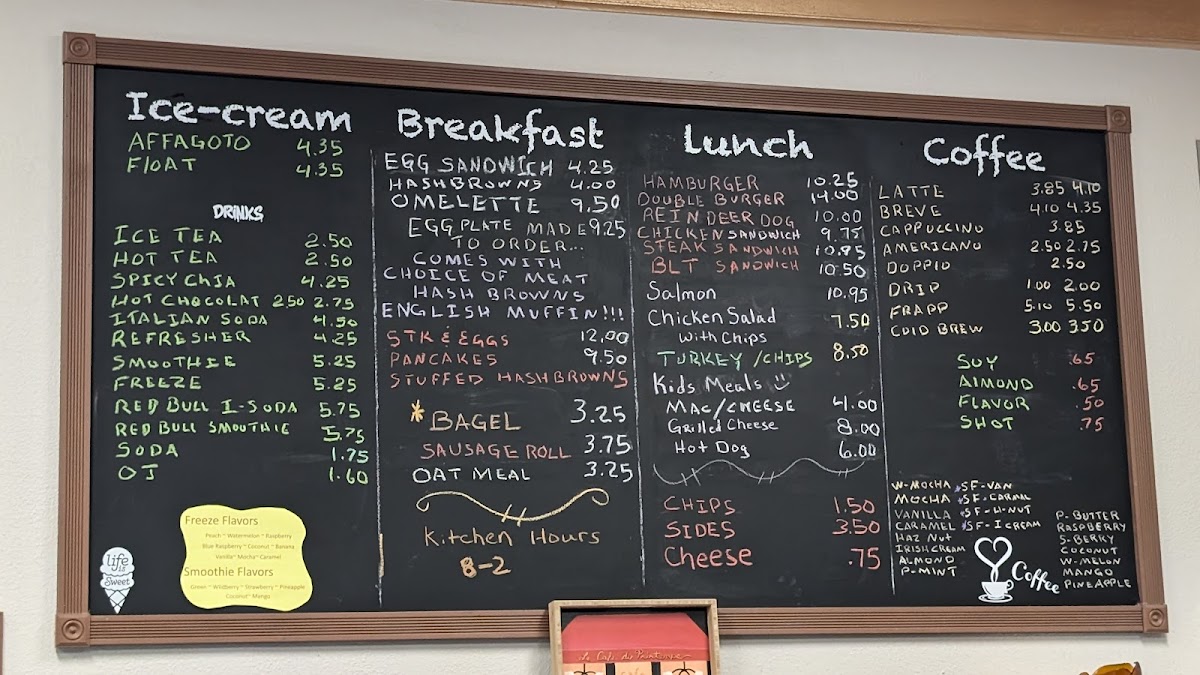 Ice-cream
AFFAGOTO 4.35
FLOAT 4.35
DRINKS
ICE TEA 2.50
HOT TEA 2.50
SPICY CHIA 4.25
HOT CHOCOLAT 2.50 2.75
ITALIAN SODA 4.50
REFRESHER 4.25
SMOOTHIE 5.25
FREEZE 5.25
RED BULL I-SODA 5.75
RED BULL SMOOTHIE 5.75
SODA 1.75
OJ 1.60
Freeze Flavors
Peach ~ Watermelon ~ Raspberry
Blue Raspberry ~ Coconut ~ Banana
Vanilla ~ Mocha ~ Caramel
Smoothie Flavors
Green ~ Wildberry ~ Strawberry ~ Pineapple
Coconut ~ Mango
life
is
sweet
Breakfast
EGG SANDWICH 4.25
HASHBROWNS 4.00
OMELETTE 9.50
EGG PLATE MADE 9.25
TO ORDER...
COMES WITH
CHOICE OF MEAT
HASH BROWNS
ENGLISH MUFFIN!!!
STK & EGGS 12.00
PANCAKES 9.50
STUFFED HASHBROWNS
*BAGEL 3.25
SAUSAGE ROLL 3.75
OAT MEAL 3.25
Kitchen Hours
8-2
Lunch
HAMBURGER 10.25
DOUBLE BURGER 14.00
REINDEER DOG 10.00
CHICKEN SANDWICH 9.75
STEAK SANDWICH 10.95
BLT SANDWICH 10.50
Salmon 10.95
Chicken Salad 7.50
with Chips
TURKEY /CHIPS 8.50
Kids Meals
MAC/CHEESE 4.00
Grilled Cheese 8.00
Hot Dog 6.00
CHIPS 1.50
SIDES 3.50
Cheese .75
Coffee
LATTE 3.85 4.10
BREVE 4.10 4.35
CAPPUCCINO 3.85
AMERICANO 2.50 2.75
DOPPIO 2.50
DRIP 1.00 2.00
FRAPP 5.10 5.50
COLD BREW 3.00 3.50
SOY .65
ALMOND .65
FLAVOR .50
SHOT .75
W-MOCHA *SF-VAN
MOCHA *SF-CARML
VANILLA *SF-H-NUT
CARAMEL *SF-I CREAM
HAZ NUT
IRISH CREAM
ALMOND
P-MINT
P-BUTTER
RASPBERRY
S-BERRY
COCONUT
W-MELON
MANGO
PINEAPPLE
Coffee
Le Cafe du Printemps